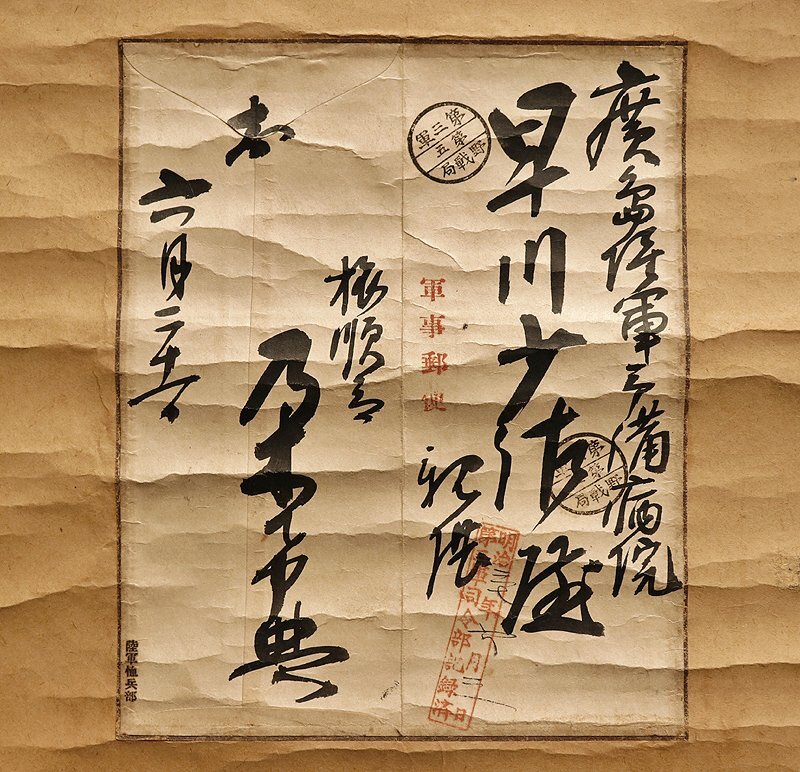 廣島陸軍予備病院
早川少佐殿
第三軍
第五
野戰局
第三軍
野戰局
軍事郵便
明治 年 月 日
軍司令部記録済
旅順
乃木希典
六月二十
陸軍恤兵部